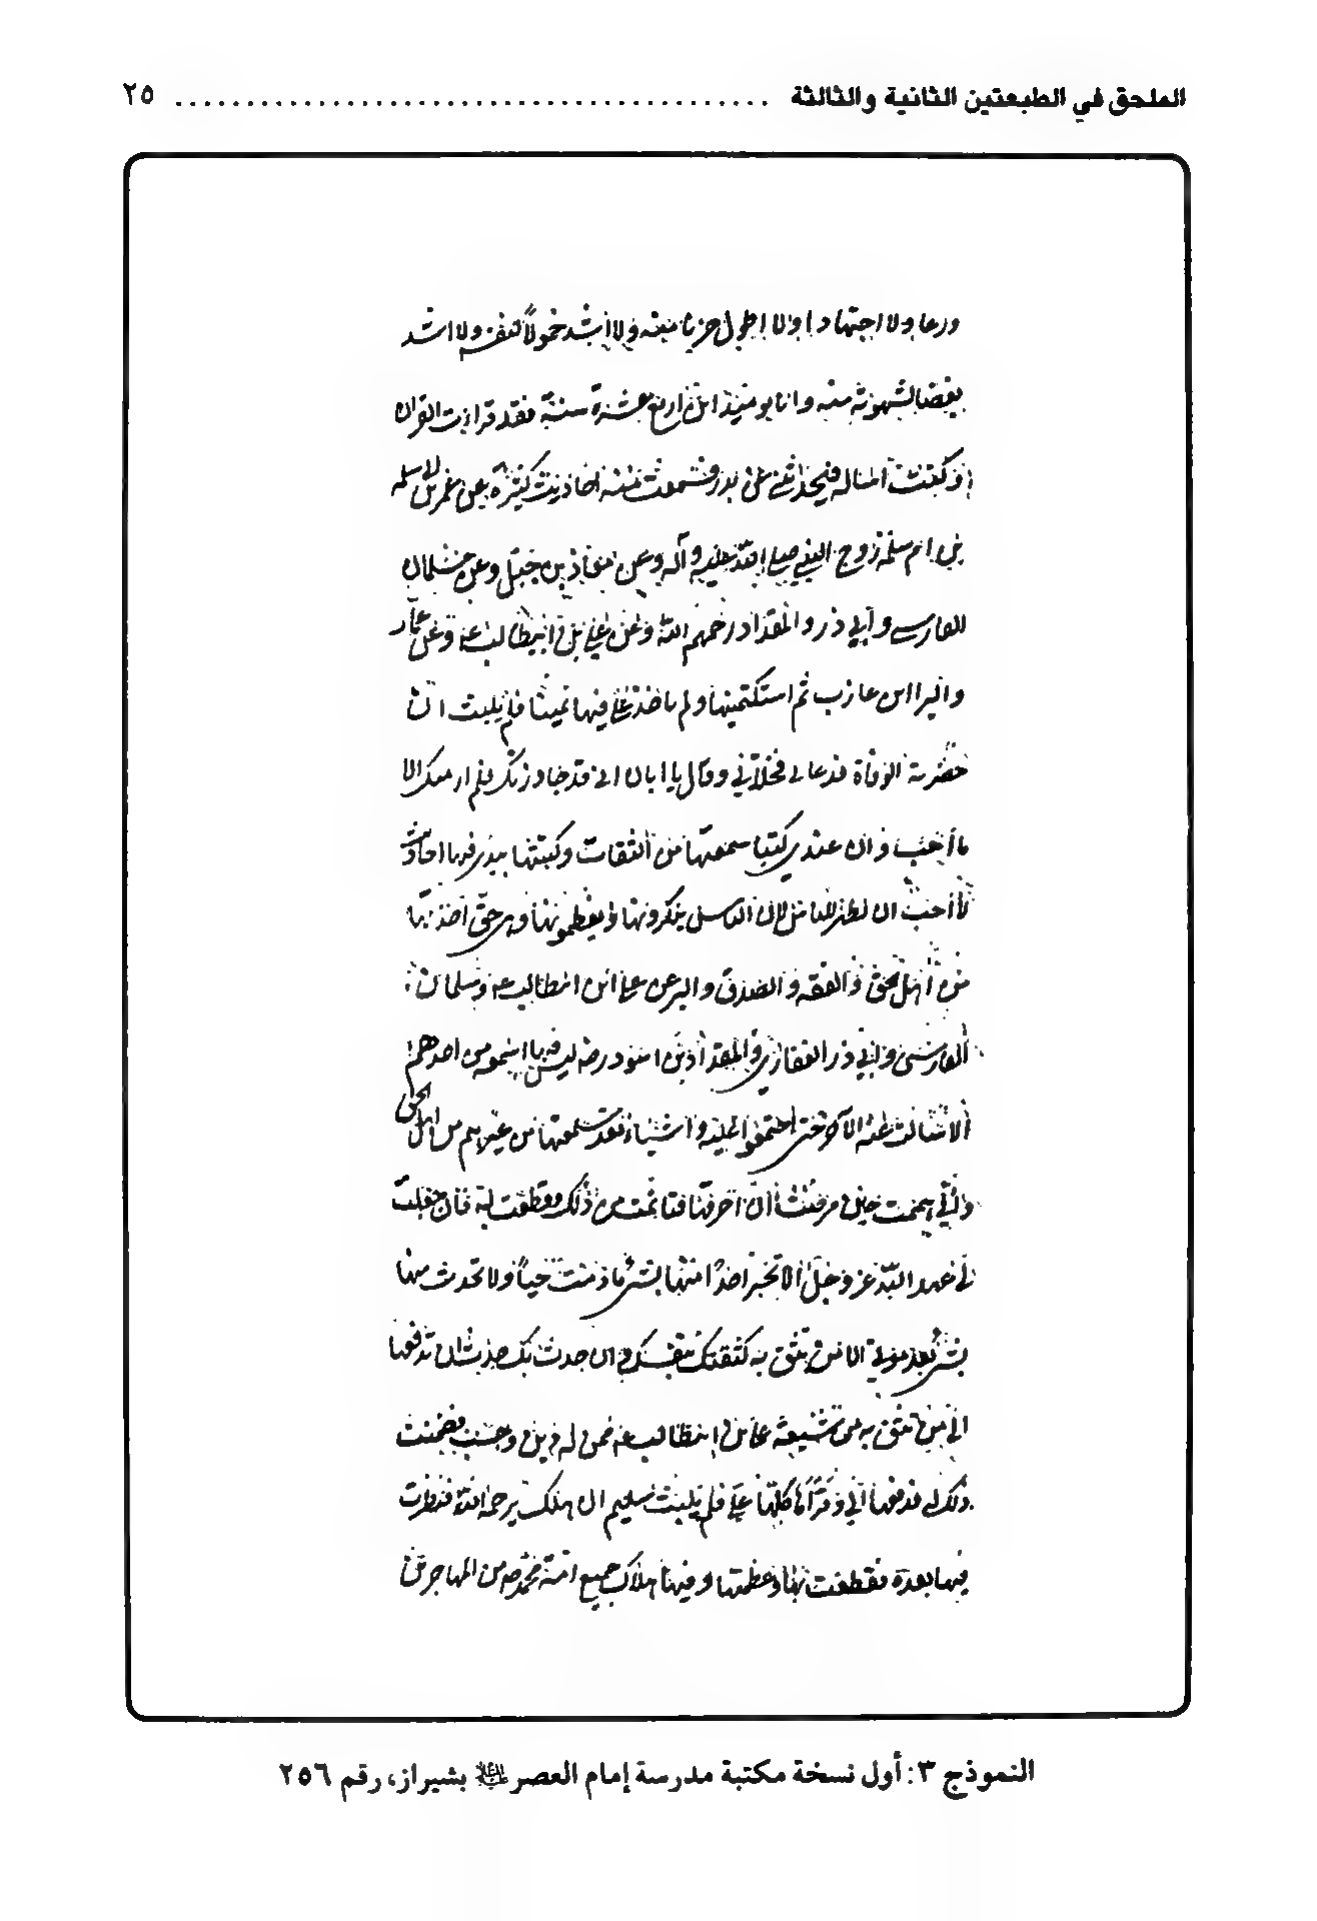 الملحق في الطبعتين الثانية والثالثة ........................................ ٢٥
ورعا ولا اجتهادا ولا اطول حزنا منه ولا اشد خمولا لنفسه ولا اشد
بغضا لشهوته منه وانا يومئذ ابن اربع عشرة سنة فقد قرات القران
وكنت اساله فيحدثني عن بدر فسمعت منه احاديث كثيرة عن عمر بن ابي سلمه
بن ام سلمة زوج النبي صلى الله عليه وآله وعن معاذ بن جبل وعن سلمان
الفارسي وأبي ذر والمقداد رحمهم الله وعن علي بن ابيطالب ع وعن عمار
والبرا ابن عازب ثم استكتمنيها ولم ياخذ علي فيها يمينا فلم يلبث ان
حضرته الوفاة فدعاني فخلا بي وقال يا ابان اني قد جاورتك فلم ار منك الا
ما أحب وان عندي كتبا سمعتها من الثقات وكتبتها بيدي فيها احاديث
لا أحب ان تظهر للناس لان الناس ينكرونها ويعظمونها وهي حق اخذتها
من أهل الحق والفقه والصدق والبر عن علي ابن ابيطالب ع وسلمان
الفارسي وأبي ذر الغفاري والمقداد بن اسود رضه ليس فيها اسمعه من احدهم
الا سالت عنه الآخر حتى اجتمعوا عليه واشياء بعد سمعتها من غيرهم من اهل الحق
واني هممت حين مرضت أن احرقها فتاثمت من ذلك وقطعت به فان جعلت
لي عهد الله عز وجل ألا تخبر احدا منها بشيء ما دمت حيا ولا تحدث منها
بشيء بعد موتي الا من تثق به كثقتك بنفسك وان حدث بك حدث ان تدفعها
الى من تثق به من شيعة علي بن ابيطالب ع ممن له دين وحسب فضمنت
ذلك له فدفعها الي وقرأها كلها علي فلم يلبث سليم ان هلك يرحمه الله فنظرت
فيها بعده فقطعت بها وعظمتها وفيها هلاك جميع امة محمد ص من المهاجرين
النموذج ٣: أول نسخة مكتبة مدرسة إمام العصر عليه السلام بشيراز، رقم ٢٥٦